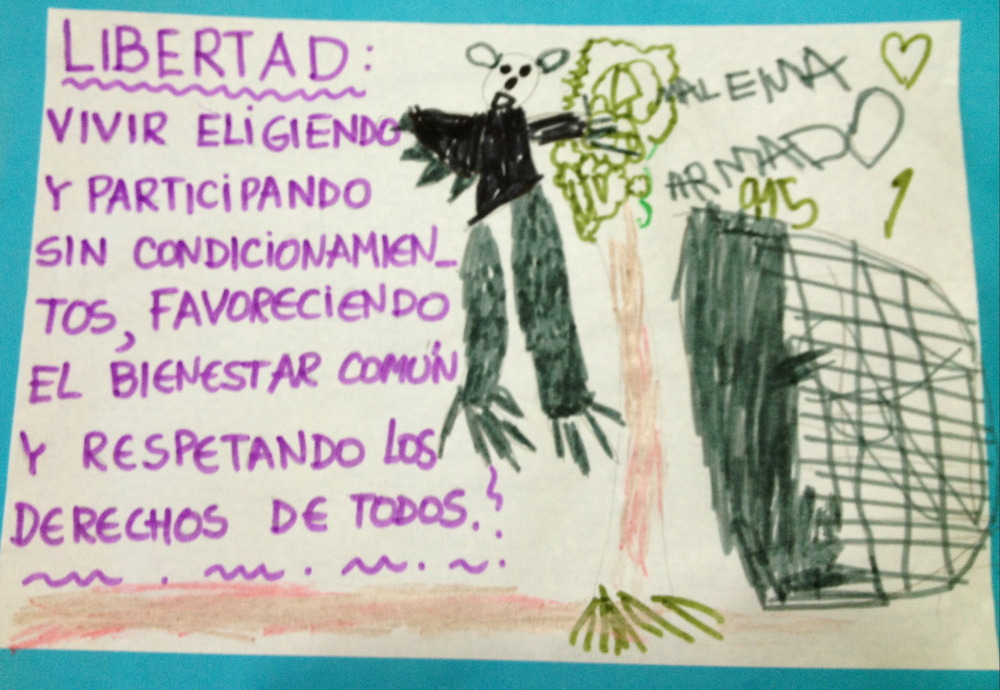 LIBERTAD:
VIVIR ELIGIENDO
Y PARTICIPANDO
SIN CONDICIONAMIEN_
TOS, FAVORECIENDO
EL BIENESTAR COMÚN
Y RESPETANDO LOS
DERECHOS DE TODOS.
MALEMA
ARMADO
915 1